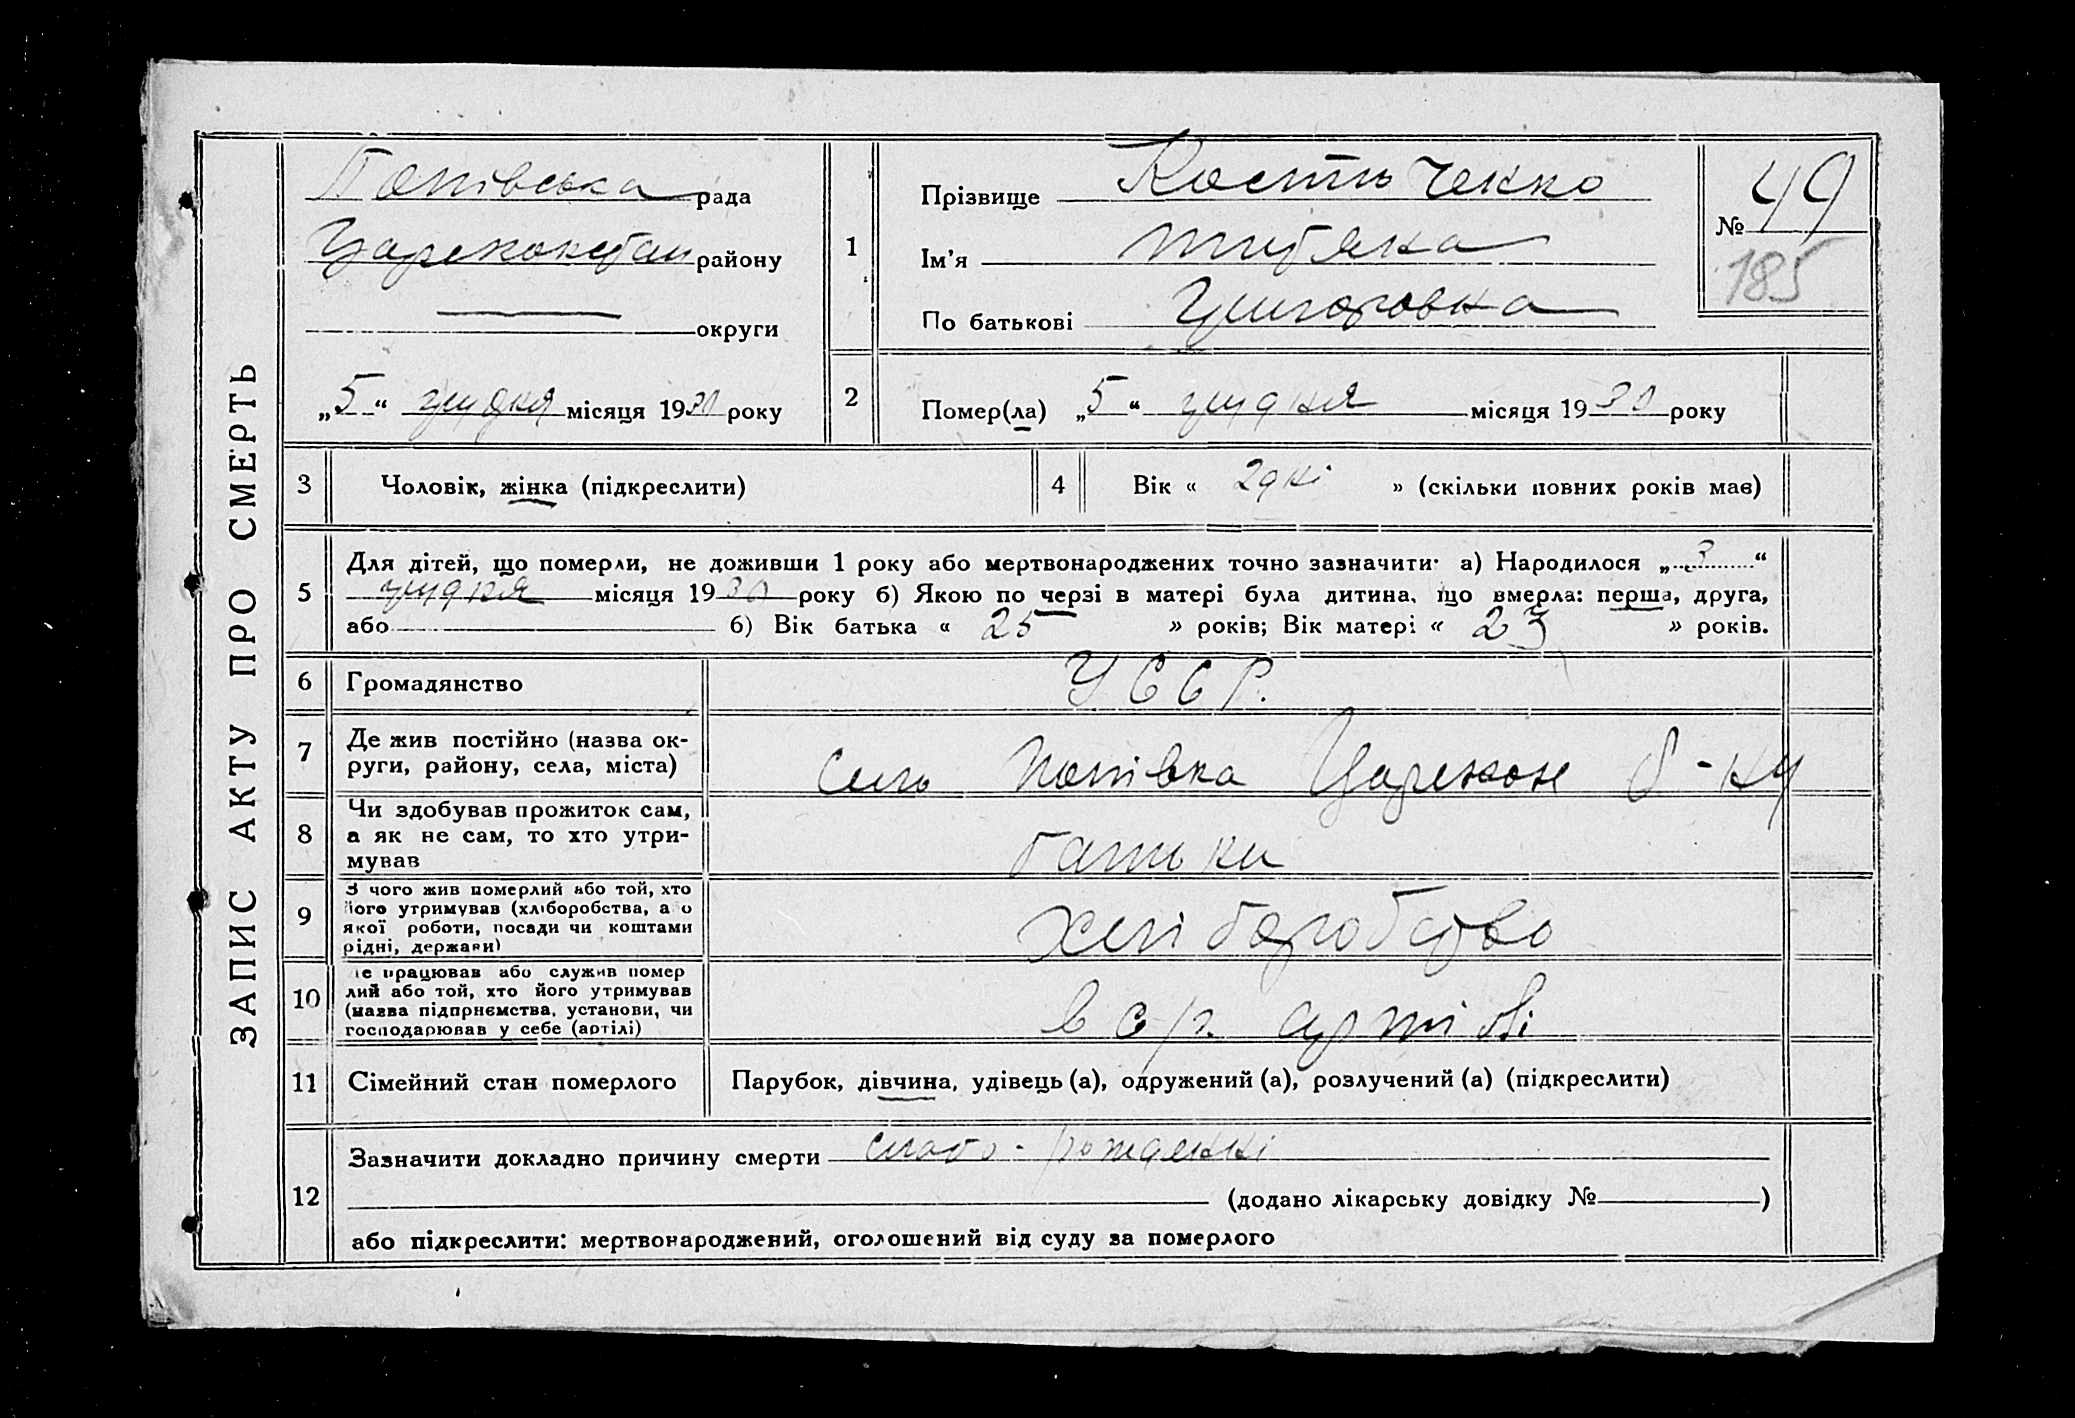 ЗАПИС АКТУ ПРО СМЕРТЬ
Попівська рада
району
округи
„5“ грудня місяця 1930 року
1
Прізвище Костюченко
Ім’я
По батькові Григоровна
№ 49
185
2
Помер(ла) „5“ грудня місяця 1930 року
3
Чоловік, жінка (підкреслити)
4
Вік « 2 дні » (скільки повних років має)
5
Для дітей, що померли, не доживши 1 року або мертвонароджених точно зазначити: а) Народилося „3“
грудня місяця 1930 року б) Якою по черзі в матері була дитина, що вмерла: перша, друга,
або б) Вік батька « 25 » років; Вік матері « 23 » років.
6
Громадянство
УССР.
7
Де жив постійно (назва ок-
руги, району, села, міста)
село Попівка Царекон р-ну
8
Чи здобував прожиток сам,
а як не сам, то хто утри-
мував
батьки
9
З чого жив померлий або той, хто
його утримував (хліборобства, або
якої роботи, посади чи коштами
рідні, держави)
хліборобство
10
Де працював або служив помер
лий або той, хто його утримував
(назва підприємства, установи, чи
господарював у себе (артілі)
в с/г. артілі
11
Сімейний стан померлого
Парубок, дівчина, удівець (а), одружений (а), розлучений (а) (підкреслити)
12
Зазначити докладно причину смерти слабо-рожденні
(додано лікарську довідку № )
або підкреслити: мертвонароджений, оголошений від суду за померлого